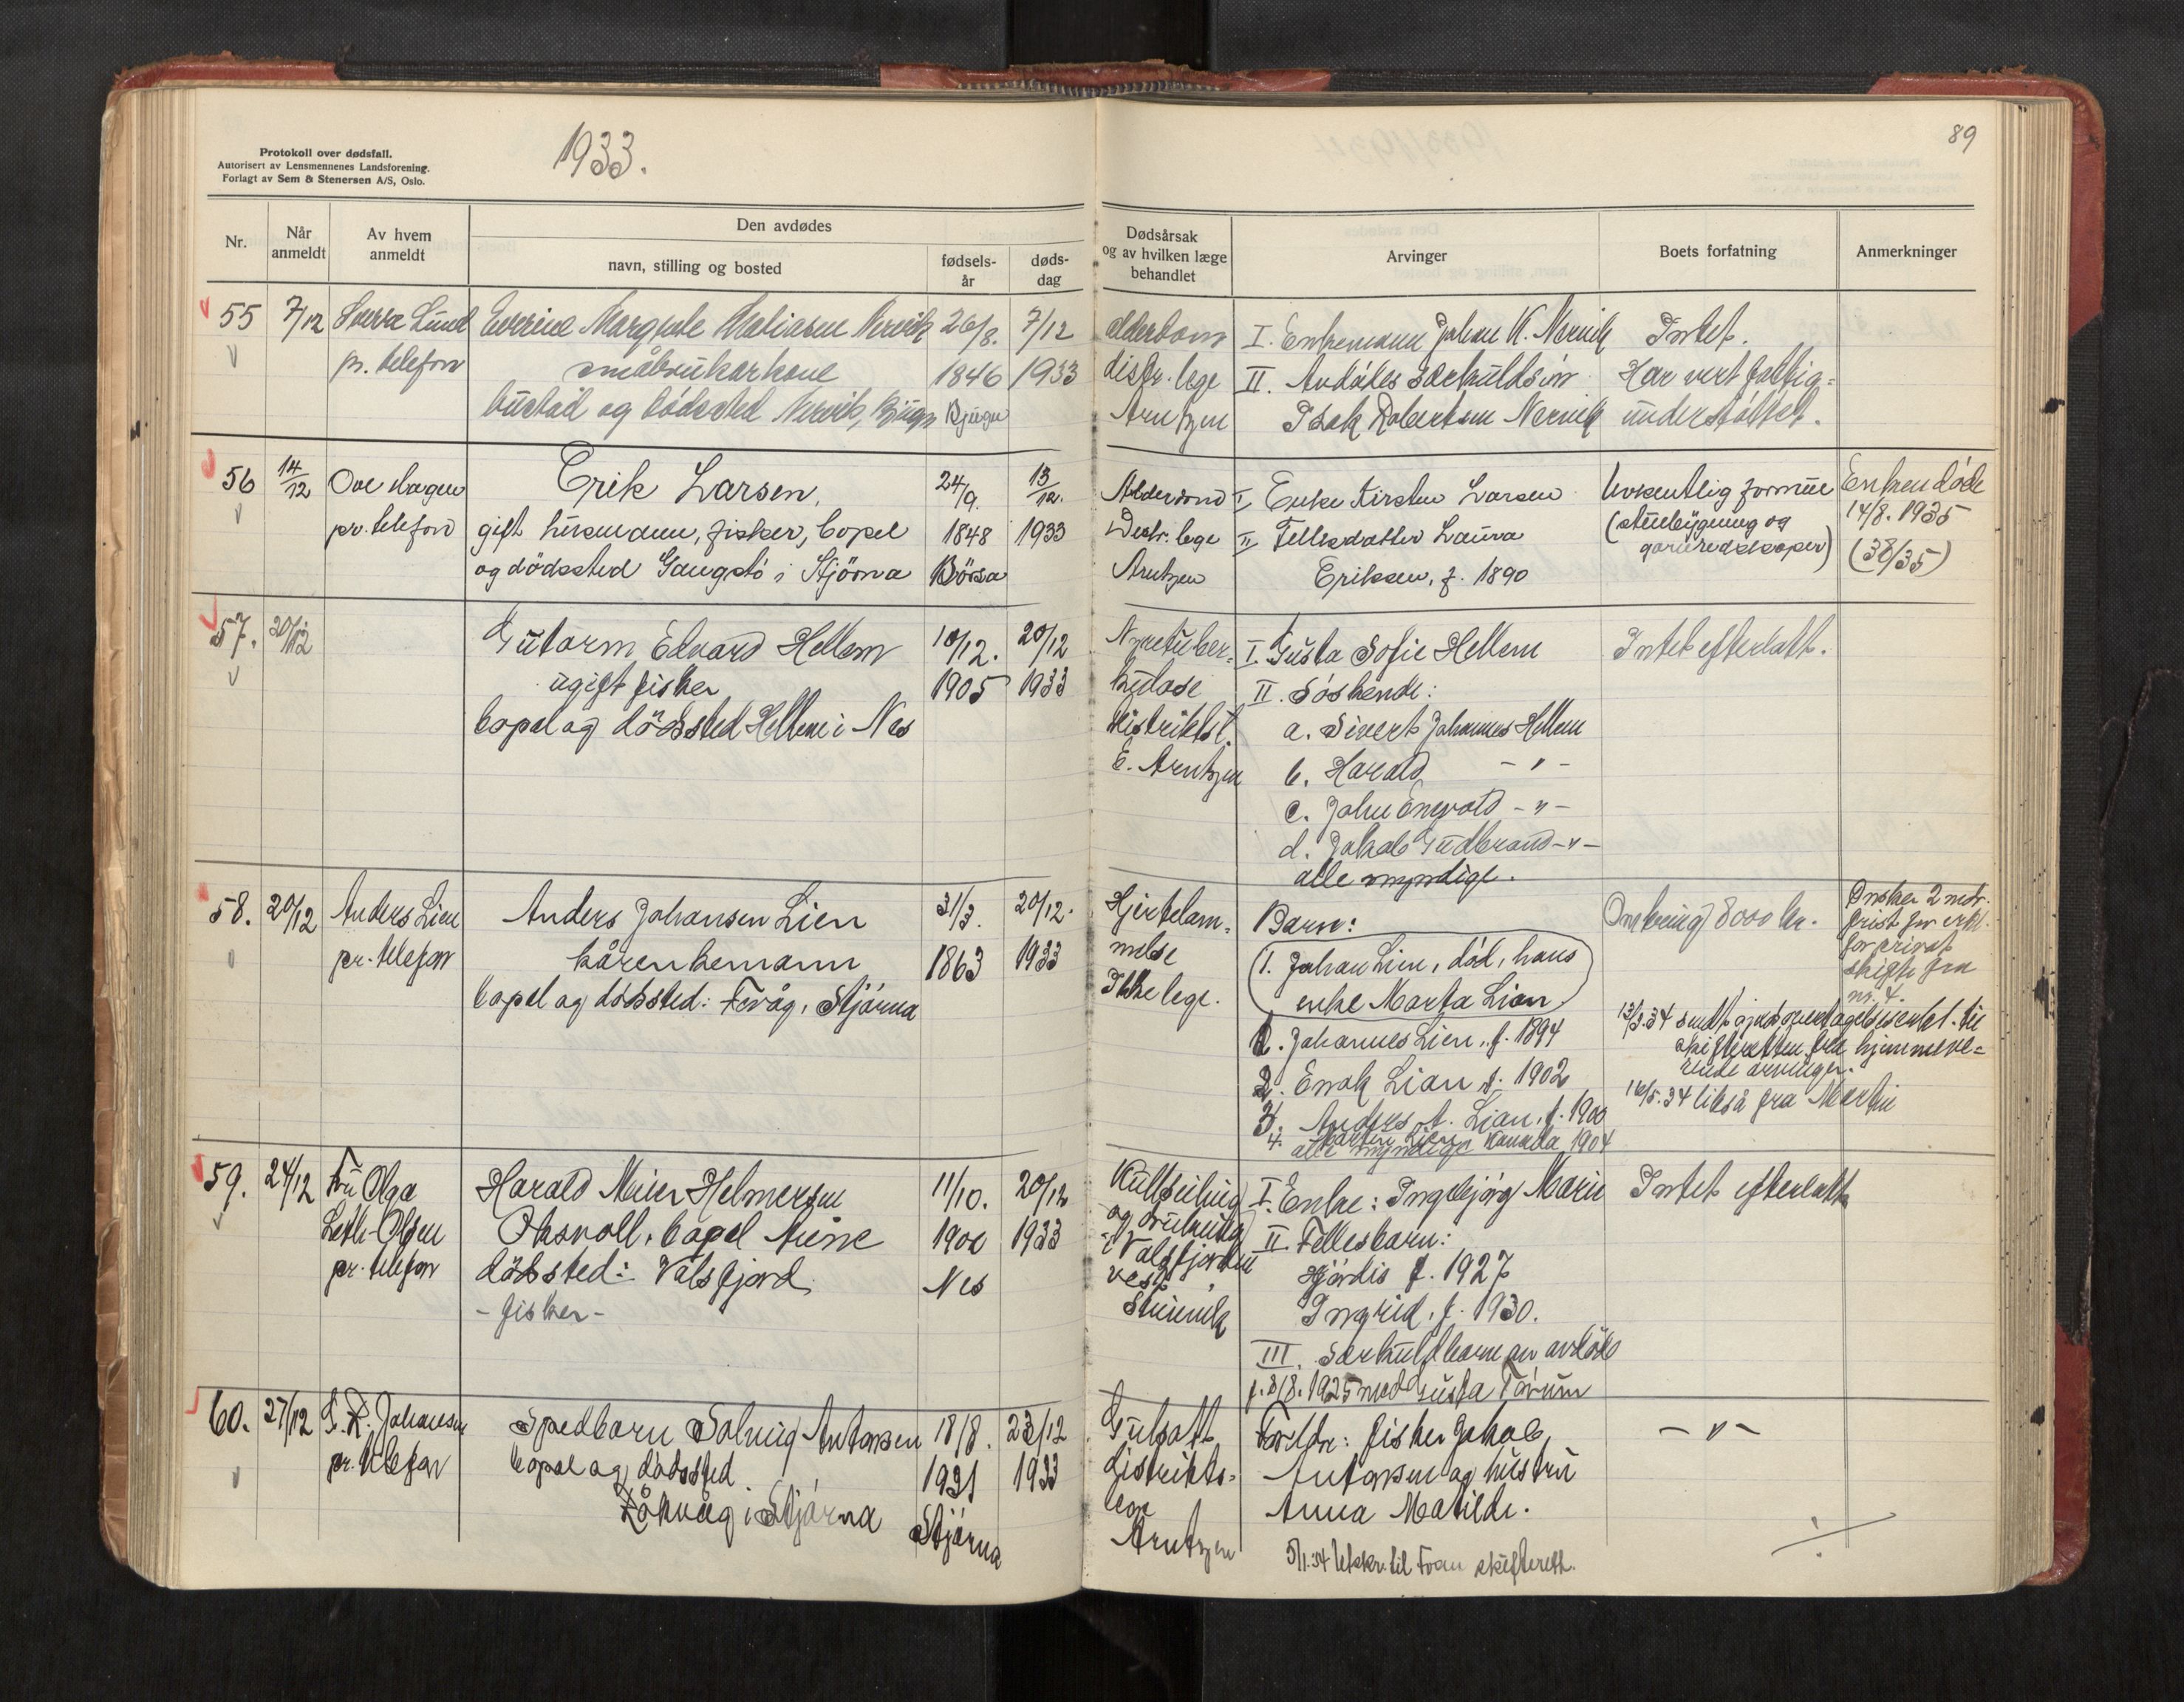 Protokoll over dødsfall.
Autorisert av Lensmennenes Landsforening.
Forlagt av Sem & Stenersen A/S, Oslo.
1933.
89
Nr.
Når anmeldt
Av hvem anmeldt
Den avdødes
navn, stilling og bosted
fødsels-
år
døds-
dag
Dødsårsak
og av hvilken læge
behandlet
Arvinger
Boets forfatning
Anmerkninger
55 7/12 Sverre Lund
pr. telefon
småbrukarkone
bustad og dødssted Nervik, Bjugn
26/8.
1846
Bjugn
7/12
1933
alderdom
distr. lege
Arntzen
I. Enkemann Johan K. Nervik
II. Avdødes særkuldsøn
Isak Robertsen Nervik
Intet.
Har vert fattig-
understøttet.
56 14/12 Ove Hagen
pr. telefon
Erik Larsen,
gift husmann, fisker, bopel
og dødssted Gangstø i Stjørna
24/9.
1848
Börsa
13/12.
1933
Alderdom
Distr. lege
Arntzen
I, Enke Kirsten Larsen
II, Fellesdatter Laura
Eriksen, f. 1890
Uvesentlig formue
(stuebygning og
garnredskaper)
Enken døde
14/8. 1935
(38/35)
57. 20/12
Gutorm Edvard Hellem
ugift fisker
bopel og dödssted Hellem i Nes
10/12.
1905
20/12
1933
Nyretuber-
kulose
distriktsl.
E. Arntzen
I. Gusta Sofie Hellem
II. Søskende:
a. Sivert Johannes Hellem
b. Harald -"-
c. Johan Enevold -"-
d. Jakob Gudbrand -"-
alle myndige.
Intet efterlatt.
58. 20/12 Anders Lien
pr. telefon
Anders Johansen Lien
kårenkemann
bopel og dødssted: Fevåg, Stjørna
31/3.
1863
20/12.
1933
Hjertelam-
melse
Ikke lege.
Barn:
1. Johan Lien, død, hans
enke Marta Lian.
1. Johannes Lien, f. 1894
2. Enok Lian f. 1902
3. Anders A. Lian, f. 1900
4. Martin Lien Kanada 1904
alle myndige
Omkring 8000 kr.
Ønsker 2 mdr.
frist for erkl.
for privat
skifte fra
nr. 4.
13/3.34 sendt gjeldsovertagelseserkl. til
skifteretten fra hjemmeve-
rende arvinger.
16/5.34 likså fra Martin
59. 24/12 Fru Olga
Leth-Olsen
pr. telefon
Harald Meier Helmersen
Oksvoll, bopel Aune
dödssted: Valsfjord
- fisker -
11/10.
1900
Nes
20/12
1933
Kullseiling
og drukning
i Valsfjorden
vest
I. Enke: Ingebjørg Marie
II. Fellesbarn:
Hjördis f. 1927
Ingrid, f. 1930.
III. Særkuldbarn av avdöde
f. 8/8. 1925 med Gusta Tørum
Intet efterlatt
60. 27/12 G. R. Johansen
pr. telefon
Spedbarn Solveig Antonsen
bopel og dødssted
Råkvåg i Stjørna
18/8.
1931
Stjørna
23/12
1933
Gulsott
distrikts-
lege
Arntzen
Foreldre: fisker Jakob
Antonsen og hustru
Anna Matilde.
- " -
5/1.34 Utskr. til Fosen skifterett.